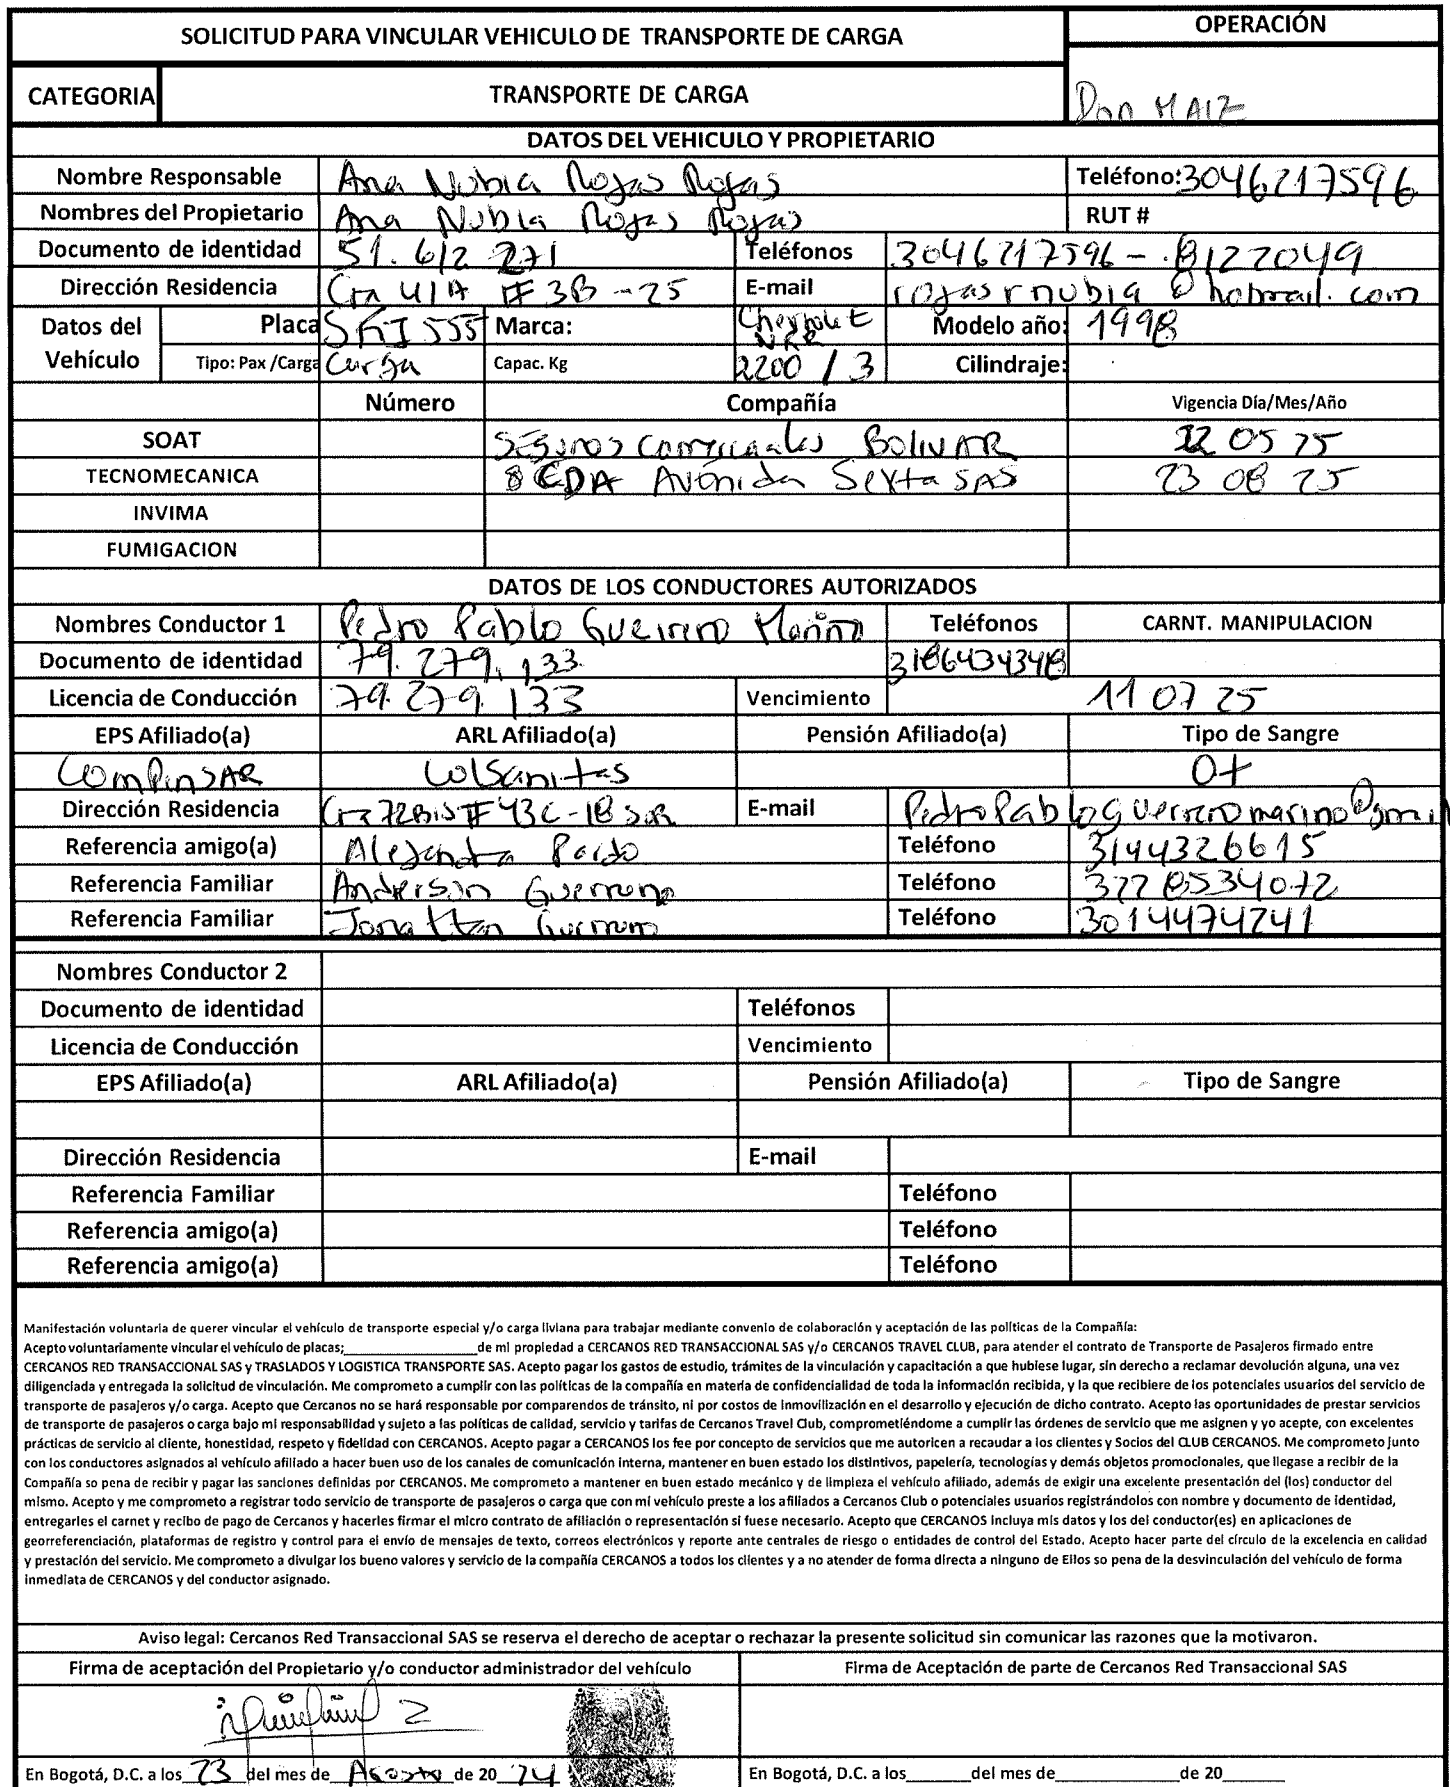 SOLICITUD PARA VINCULAR VEHICULO DE TRANSPORTE DE CARGA
OPERACIÓN
CATEGORIA TRANSPORTE DE CARGA Don MAIZ
DATOS DEL VEHICULO Y PROPIETARIO
Nombre Responsable Ana Nubia Rojas Rojas Teléfono: 3046217596
Nombres del Propietario Ana Nubia Rojas Rojas RUT #
Documento de identidad 51.612 271 Teléfonos 3046217596 - 8122049
Dirección Residencia Cra 41A # 3B - 25 E-mail rojasrnubia@hotmail.com
Datos del Vehículo Placa SKI555 Marca: Chevrolet NKR Modelo año: 1998
Tipo: Pax /Carga Carga Capac. Kg 2200 / 3 Cilindraje:
Número Compañía Vigencia Día/Mes/Año
SOAT Seguros comerciales BOLIVAR 22 05 25
TECNOMECANICA CDA Avenida Sexta SAS 23 08 25
INVIMA
FUMIGACION
DATOS DE LOS CONDUCTORES AUTORIZADOS
Nombres Conductor 1 Pedro Pablo Guerrero Mariño Teléfonos CARNT. MANIPULACION
Documento de identidad 79.279.133 3186434348
Licencia de Conducción 79.279.133 Vencimiento 11 07 25
EPS Afiliado(a) ARL Afiliado(a) Pensión Afiliado(a) Tipo de Sangre
Compensar Colsanitas O+
Dirección Residencia Cra 72Bis # 43C-18 Sur E-mail PedroPabloGuerreromarino@gmail
Referencia amigo(a) Alejandra Pardo Teléfono 3144326615
Referencia Familiar Anderson Guerrero Teléfono 3228534072
Referencia Familiar Jonattan Guerrero Teléfono 3014474241
Nombres Conductor 2
Documento de identidad Teléfonos
Licencia de Conducción Vencimiento
EPS Afiliado(a) ARL Afiliado(a) Pensión Afiliado(a) Tipo de Sangre
Dirección Residencia E-mail
Referencia Familiar Teléfono
Referencia amigo(a) Teléfono
Referencia amigo(a) Teléfono
Manifestación voluntaria de querer vincular el vehículo de transporte especial y/o carga liviana para trabajar mediante convenio de colaboración y aceptación de las políticas de la Compañía:
Acepto voluntariamente vincular el vehículo de placas;____________________de mi propiedad a CERCANOS RED TRANSACCIONAL SAS y/o CERCANOS TRAVEL CLUB, para atender el contrato de Transporte de Pasajeros firmado entre
CERCANOS RED TRANSACCIONAL SAS y TRASLADOS Y LOGISTICA TRANSPORTE SAS. Acepto pagar los gastos de estudio, trámites de la vinculación y capacitación a que hubiese lugar, sin derecho a reclamar devolución alguna, una vez
diligenciada y entregada la solicitud de vinculación. Me comprometo a cumplir con las políticas de la compañía en materia de confidencialidad de toda la información recibida, y la que recibiere de los potenciales usuarios del servicio de
transporte de pasajeros y/o carga. Acepto que Cercanos no se hará responsable por comparendos de tránsito, ni por costos de inmovilización en el desarrollo y ejecución de dicho contrato. Acepto las oportunidades de prestar servicios
de transporte de pasajeros o carga bajo mi responsabilidad y sujeto a las políticas de calidad, servicio y tarifas de Cercanos Travel Club, comprometiéndome a cumplir las órdenes de servicio que me asignen y yo acepte, con excelentes
prácticas de servicio al cliente, honestidad, respeto y fidelidad con CERCANOS. Acepto pagar a CERCANOS los fee por concepto de servicios que me autoricen a recaudar a los clientes y Socios del CLUB CERCANOS. Me comprometo junto
con los conductores asignados al vehículo afiliado a hacer buen uso de los canales de comunicación interna, mantener en buen estado los distintivos, papelería, tecnologías y demás objetos promocionales, que llegase a recibir de la
Compañía so pena de recibir y pagar las sanciones definidas por CERCANOS. Me comprometo a mantener en buen estado mecánico y de limpieza el vehículo afiliado, además de exigir una excelente presentación del (los) conductor del
mismo. Acepto y me comprometo a registrar todo servicio de transporte de pasajeros o carga que con mi vehículo preste a los afiliados a Cercanos Club o potenciales usuarios registrándolos con nombre y documento de identidad,
entregarles el carnet y recibo de pago de Cercanos y hacerles firmar el micro contrato de afiliación o representación si fuese necesario. Acepto que CERCANOS incluya mis datos y los del conductor(es) en aplicaciones de
georreferenciación, plataformas de registro y control para el envío de mensajes de texto, correos electrónicos y reporte ante centrales de riesgo o entidades de control del Estado. Acepto hacer parte del círculo de la excelencia en calidad
y prestación del servicio. Me comprometo a divulgar los bueno valores y servicio de la compañía CERCANOS a todos los clientes y a no atender de forma directa a ninguno de Ellos so pena de la desvinculación del vehículo de forma
inmediata de CERCANOS y del conductor asignado.
Aviso legal: Cercanos Red Transaccional SAS se reserva el derecho de aceptar o rechazar la presente solicitud sin comunicar las razones que la motivaron.
Firma de aceptación del Propietario y/o conductor administrador del vehículo Firma de Aceptación de parte de Cercanos Red Transaccional SAS
En Bogotá, D.C. a los 23 del mes de Agosto de 20 24 En Bogotá, D.C. a los_______del mes de____________de 20______